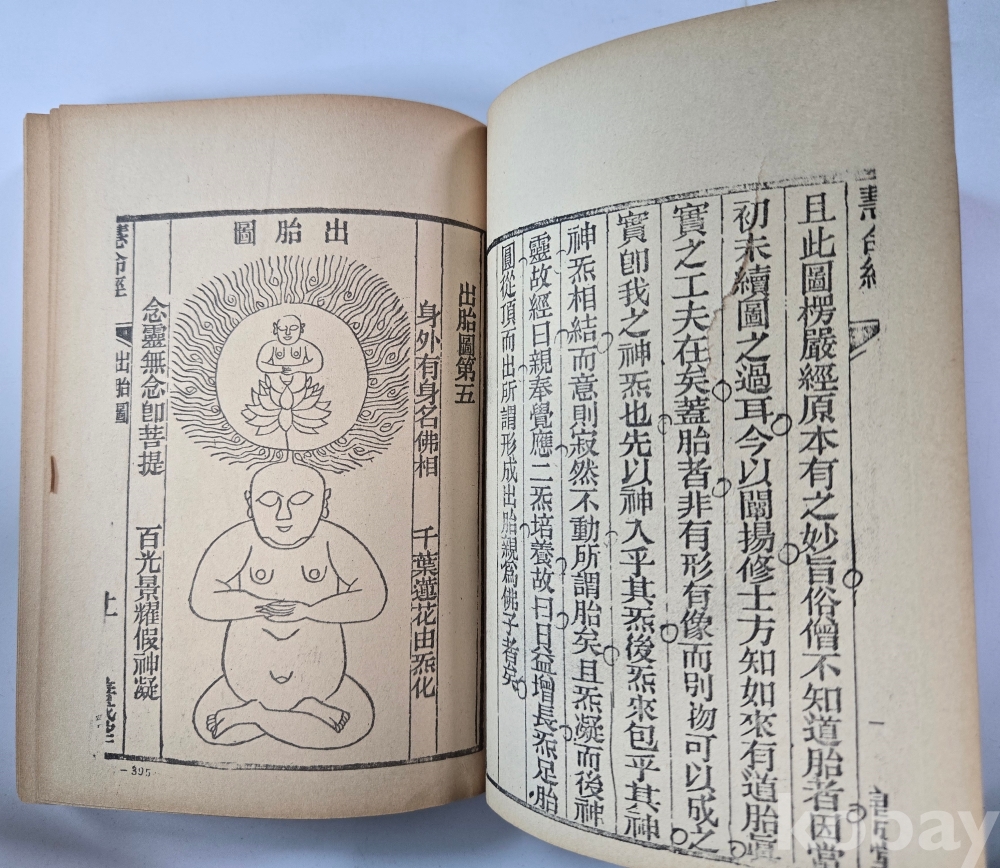 慧命經
且此圖楞嚴經原本有之妙旨俗僧不知道胎者因當
初未續圖之過耳今以闡揚修士方知如來有道胎眞
實之工夫在矣蓋胎者非有形有像而別物可以成之
實卽我之神炁也先以神入乎其炁後炁來包乎其神
神炁相結而意則寂然不動所謂胎矣且炁凝而後神
靈故經曰親奉覺應二炁培養故曰日益增長炁足胎
圓從頂而出所謂形成出胎親爲佛子者矣
出胎圖第五
出胎圖
身外有身名佛相
千葉蓮花由炁化
念靈無念卽菩提
百光景耀假神凝
慧命經
出胎圖
-395-
kobay